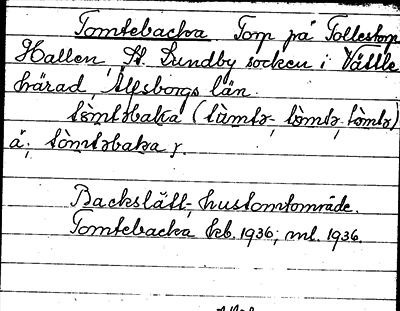 Tomtebacka. Torp på Tollestorp
Hallen, St. Lundby socken i Vättle
härad, Älvsborgs län.
tòmtəbaka (tùmtə-, tòmtə-, tòmtə)
ä; tòmtəbaka γ.
Backslätt-; hustomtområde.
Tomtebacka kb. 1936; ml. 1936.